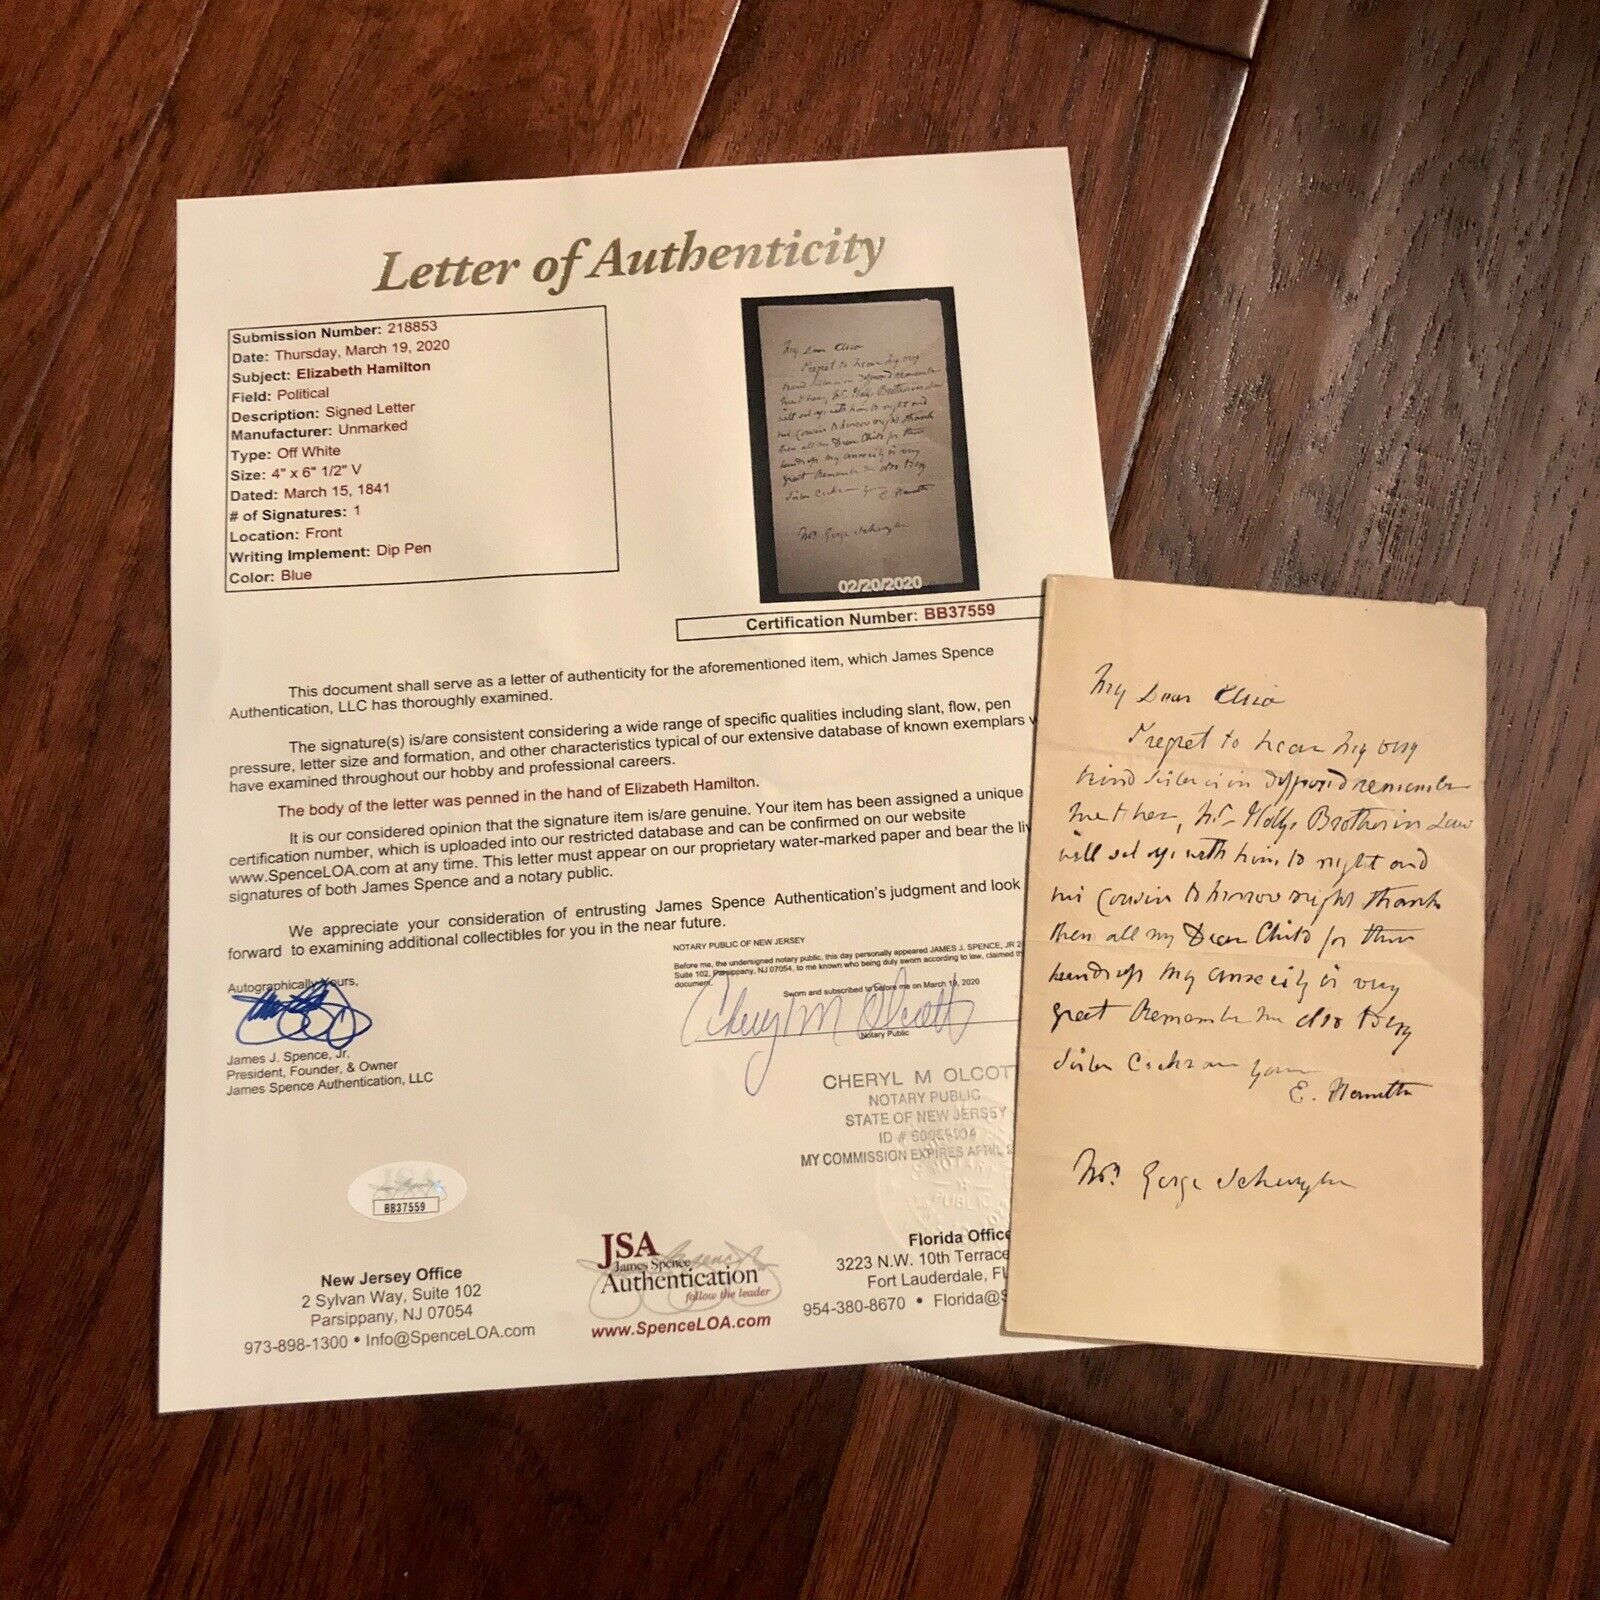 Letter of Authenticity
Submission Number: 218853
Date: Thursday, March 19, 2020
Subject: Elizabeth Hamilton
Field: Political
Description: Signed Letter
Manufacturer: Unmarked
Type: Off White
Size: 4" x 6" 1/2" V
Dated: March 15, 1841
# of Signatures: 1
Location: Front
Writing Implement: Dip Pen
Color: Blue
02/20/2020
Certification Number: BB37559
This document shall serve as a letter of authenticity for the aforementioned item, which James Spence
Authentication, LLC has thoroughly examined.
The signature(s) is/are consistent considering a wide range of specific qualities including slant, flow, pen
pressure, letter size and formation, and other characteristics typical of our extensive database of known exemplars
have examined throughout our hobby and professional careers.
The body of the letter was penned in the hand of Elizabeth Hamilton.
It is our considered opinion that the signature item is/are genuine. Your item has been assigned a unique
certification number, which is uploaded into our restricted database and can be confirmed on our website
www.SpenceLOA.com at any time. This letter must appear on our proprietary water-marked paper and bear the
signatures of both James Spence and a notary public.
We appreciate your consideration of entrusting James Spence Authentication's judgment and look
forward to examining additional collectibles for you in the near future.
NOTARY PUBLIC OF NEW JERSEY
Before me, the undersigned notary public, this day personally appeared JAMES J. SPENCE, JR
Suite 102, Parsippany, NJ 07054, to me known who being duly sworn according to law, claimed
document.
Sworn and subscribed to before me on March 19, 2020
Cheryl M Olcott
Notary Public
Autographically Yours,
James J. Spence, Jr.
President, Founder, & Owner
James Spence Authentication, LLC
CHERYL M OLCOT
NOTARY PUBLIC
STATE OF NEW JERSEY
ID #
MY COMMISSION EXPIRES APRIL
JSA
BB37559
New Jersey Office
2 Sylvan Way, Suite 102
Parsippany, NJ 07054
973-898-1300 • Info@SpenceLOA.com
JSA
James Spence
Authentication
follow the leader
www.SpenceLOA.com
Florida Office
3223 N.W. 10th Terrace
Fort Lauderdale, FL
954-380-8670 • Florida@S
My Dear
I regret to hear my very
kind remember
me to her, Brother in Law
will set off with him to night and
thank
them all my Dear Child for their
my anxiety is very
great Remember me also to my
Sister Cochran your
E. Hamilton
Mrs George Schuyler